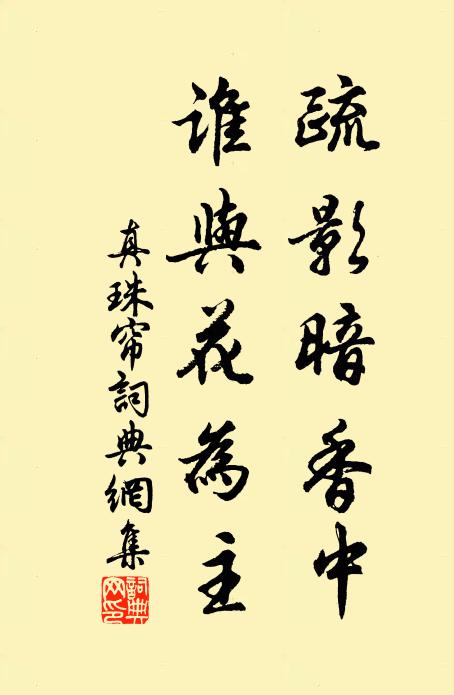 疏影暗香中
誰與花為主
真珠帘詞典網集
詞典網印